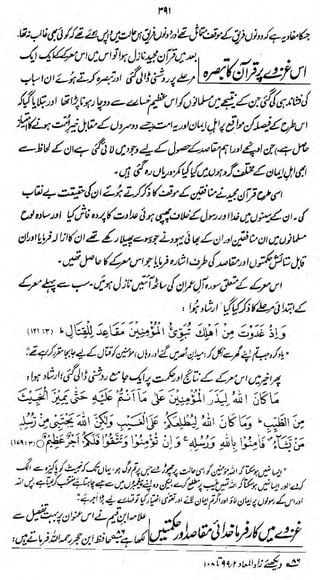 ۳۹۱
جس کا مفاد یہ ہے کہ دونوں فریق کے موقف متماثل تھے اور دونوں فریق اس حالت میں واپس ہوئے تھے کہ کوئی بھی غالب نہ تھا۔
اس غزوے پر قرآن کا تبصرہ
بعد میں قرآن مجید نازل ہوا تو اس میں اس معرکے کے ایک ایک
مرحلے پر روشنی ڈالی گئی اور تبصرہ کرتے ہوئے ان اسباب
کی نشاندہی کی گئی جن کے نتیجے میں مسلمانوں کو اس عظیم خسارے سے دوچار ہونا پڑا تھا اور بتلایا گیا کہ
اس طرح کے فیصلہ کن مواقع پر اہل ایمان اور یہ امت جسے دوسروں کے مقابل خیر امت ہونے کا امتیاز
حاصل ہے، جن اونچے اور اہم مقاصد کے حصول کے لیے وجود میں لائی گئی ہے ان کے لحاظ سے
ابھی اہل ایمان کے مختلف گروہوں میں کیا کیا کمزوریاں رہ گئی ہیں۔
اسی طرح قرآن مجید نے منافقین کے موقف کا ذکر کرتے ہوئے ان کی حقیقت بے نقاب
کی۔ ان کے سینوں میں خدا اور رسول کے خلاف چھپی ہوئی عداوت کا پردہ فاش کیا اور سادہ لوح
مسلمانوں میں ان منافقین اور ان کے بھائی یہود نے جو وسوسے پھیلا رکھے تھے ان کا ازالہ فرمایا اور ان
قابل ستائش حکمتوں اور مقاصد کی طرف اشارہ فرمایا جو اس معرکے کا حاصل تھیں۔
اس معرکے کے متعلق سورہ آل عمران کی ساٹھ آیتیں نازل ہوئیں۔ سب سے پہلے معرکے
کے ابتدائی مرحلے کا ذکر کیا گیا‘ ارشاد ہوا:
وَاِذْ غَدَوْتَ مِنْ اَهْلِكَ تُبَوِّئُ الْمُؤْمِنِيْنَ مَقَاعِدَ لِلْقِتَالِ ؕ (۱۲۱:۳)
"یاد کرو جب تم اپنے گھر سے نکل کر (میدان احد میں گئے اور وہاں) مومنین کو قتال کے لیے جابجا مقرر کر رہے تھے۔"
پھر اخیر میں اس معرکے کے نتائج اور حکمت پر ایک جامع روشنی ڈالی گئی؛ ارشاد ہوا:
مَا كَانَ اللّٰهُ لِيَذَرَ الْمُؤْمِنِيْنَ عَلٰى مَآ اَنْتُمْ عَلَيْهِ حَتّٰى يَمِيْزَ الْخَبِيْثَ
مِنَ الطَّيِّبِ ؕ وَمَا كَانَ اللّٰهُ لِيُطْلِعَكُمْ عَلَى الْغَيْبِ وَلٰكِنَّ اللّٰهَ يَجْتَبِيْ مِنْ رُّسُلِهٖ
مَنْ يَّشَآءُ ۪ فَاٰمِنُوْا بِاللّٰهِ وَرُسُلِهٖ ۚ وَاِنْ تُؤْمِنُوْا وَتَتَّقُوْا فَلَكُمْ اَجْرٌ عَظِيْمٌ ؕ (۱۷۹:۳)
"ایسا نہیں ہو سکتا کہ اللہ مومنین کو اسی حالت پر چھوڑ دے جس پر تم لوگ ہو، یہاں تک کہ خبیث کو پاکیزہ سے الگ
کر دے، اور ایسا نہیں ہو سکتا کہ اللہ تمہیں غیب پر مطلع کرے، لیکن وہ اپنے پیغمبروں میں سے جسے چاہتا ہے منتخب کر لیتا ہے، پس اللہ
اور اس کے رسولوں پر ایمان لاؤ اور اگر تم ایمان لائے اور تقویٰ اختیار کیا تو تمہارے لیے بڑا اجر ہے۔"
غزوے میں کارفرما خدائی مقاصد اور حکمتیں
علامہ ابن قیم نے اس عنوان پر بہت تفصیل سے
لکھا ہے۔ حافظ ابن حجر رحمہ اللہ فرماتے ہیں کہ
دیکھئے زاد المعاد ۹۹/۲ تا ۱۰۸